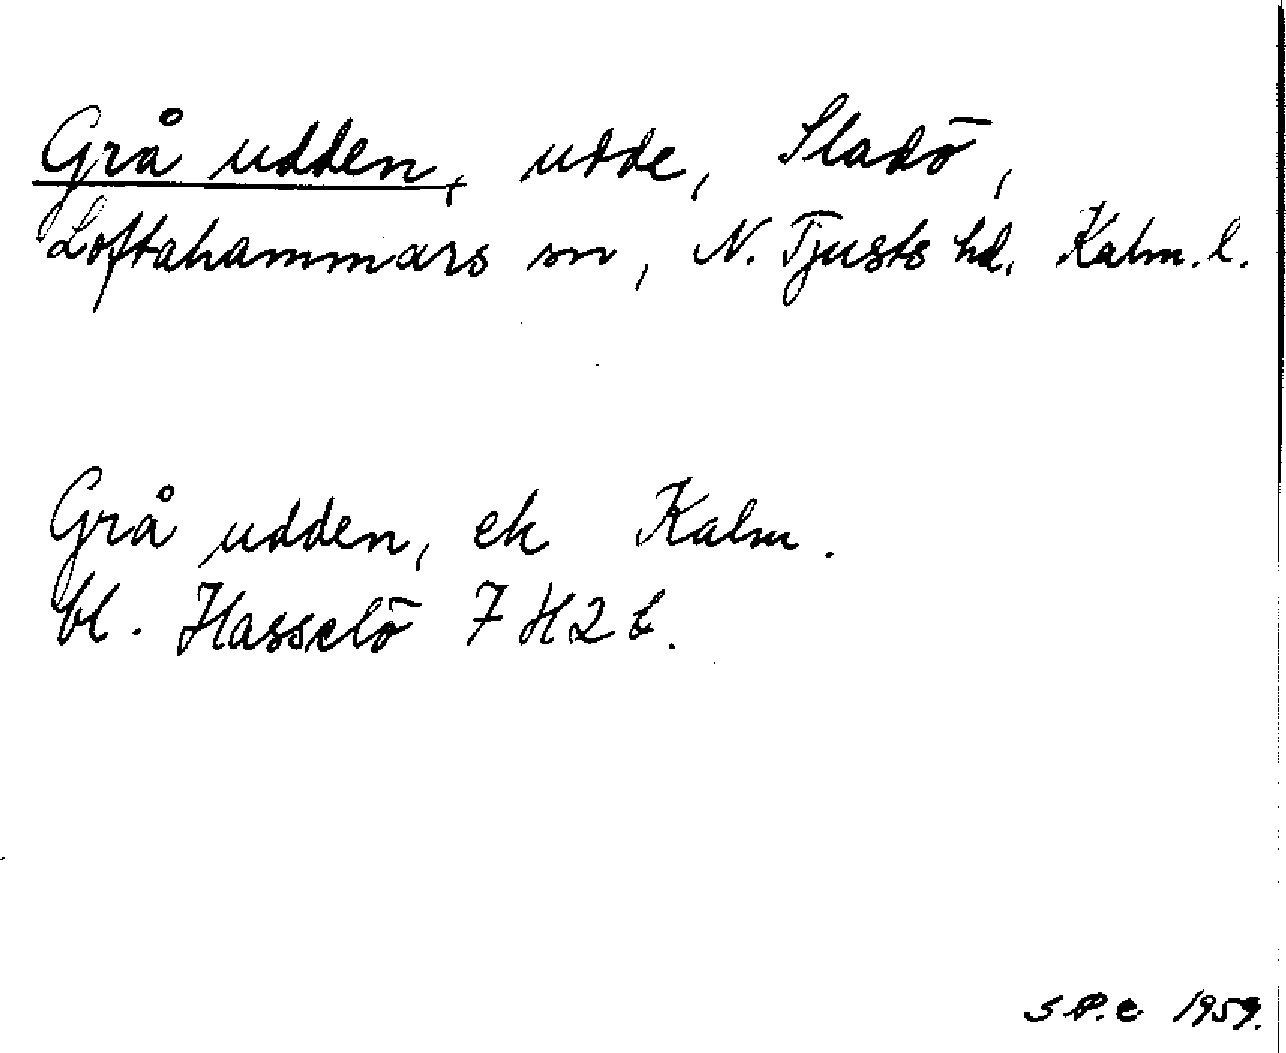 Grå udden, udde, Sladö,
Loftahammars sn, N. Tjusts hd. Kalm. l.
Grå udden, ek Kalm.
bl. Hasselö 7 H 2 b.
S.P.e 1959.